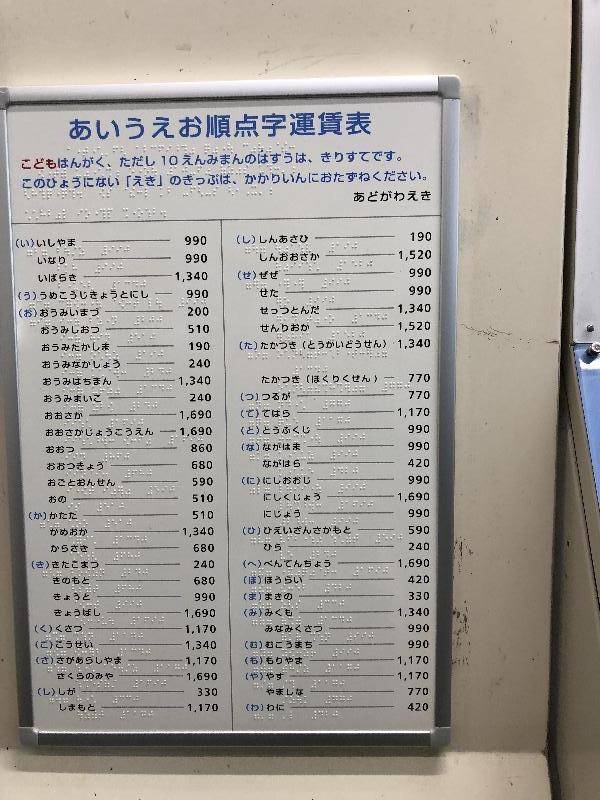 あいうえお順点字運賃表
こどもはんがく、ただし10えんみまんのはすうは、きりすてです。
このひょうにない「えき」のきっぷは、かかりいんにおたずねください。
あどがわえき
(い)いしやま 990
いなり 990
いばらき 1,340
(う)うめこうじきょうとにし 990
(お)おうみいまづ 200
おうみしおつ 510
おうみたかしま 190
おうみなかしょう 240
おうみはちまん 1,340
おうみまいこ 240
おおさか 1,690
おおさかじょうこうえん 1,690
おおつ 860
おおつきょう 680
おごとおんせん 590
おの 510
(か)かたた 510
かめおか 1,340
からさき 680
(き)きたこまつ 240
きのもと 680
きょうと 990
きょうばし 1,690
(く)くさつ 1,170
(こ)こうせい 1,340
(さ)さがあらしやま 1,170
さくらのみや 1,690
(し)しが 330
しまもと 1,170
(し)しんあさひ 190
しんおおさか 1,520
(せ)ぜぜ 990
せた 990
せっつとんだ 1,340
せんりおか 1,520
(た)たかつき(とうかいどうせん) 1,340
たかつき(ほくりくせん) 770
(つ)つるが 770
(て)てはら 1,170
(と)とうふくじ 990
(な)ながはま 990
ながはら 420
(に)にしおおじ 990
にしくじょう 1,690
にじょう 990
(ひ)ひえいざんさかもと 590
ひら 240
(へ)べんてんちょう 1,690
(ほ)ほうらい 420
(ま)まきの 330
(み)みくも 1,340
みなみくさつ 990
(む)むこうまち 990
(も)もりやま 1,170
(や)やす 1,170
やましな 770
(わ)わに 420